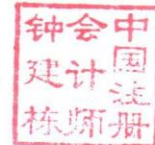 中国注册
会计师
钟建栋